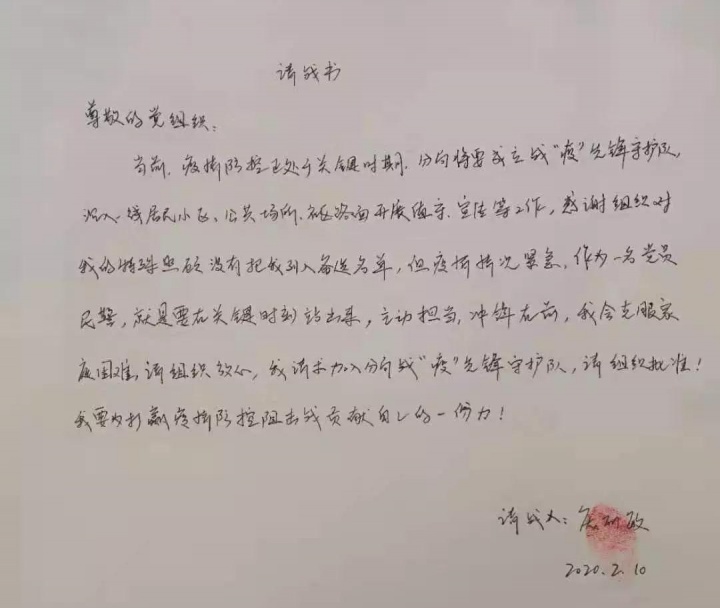 请战书
尊敬的党组织：
当前，疫情防控正处于关键时期，分局将要成立战“疫”先锋守护队，
深入一线居民小区、公共场所、社区路面开展值守、宣传等工作，感谢组织对
我的特殊照顾没有把我列入备选名单，但疫情情况紧急，作为一名党员
民警，就是要在关键时刻站出来，主动担当，冲锋在前，我会克服家
庭困难，请组织放心，我请求加入分局战“疫”先锋守护队，请组织批准！
我要为打赢疫情防控阻击战贡献自己的一份力！
请战人：
2020.2.10